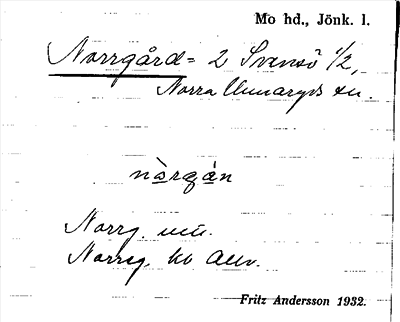 Mo hd., Jönk. l.
Norrgård = 2 Svensö 1/2,
Norra Unnaryds sn.
nàrgån
Norrg. mu.
Norrg. kb Allv.
Fritz Andersson 1932.